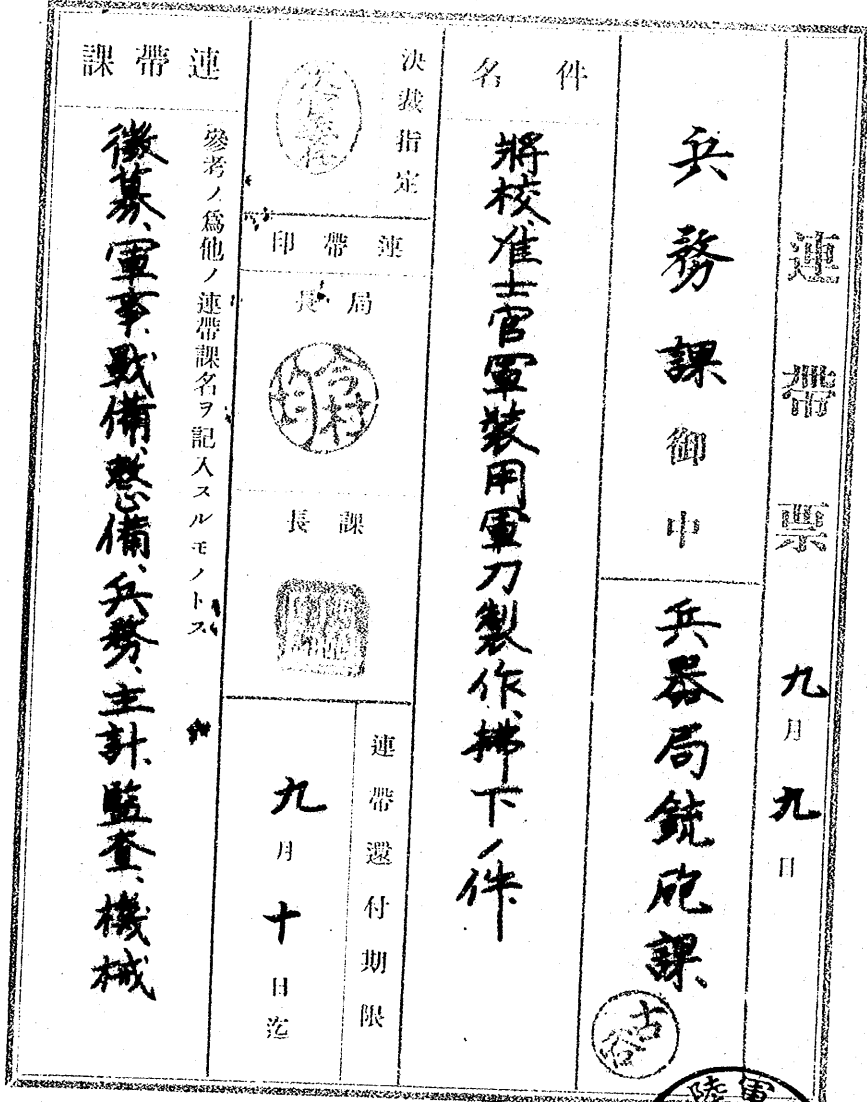 連帶票 九月九日
兵務課御中
兵器局銃砲課
古谷
件名
將校、准士官軍裝用軍刀製作、拂下ノ件
決裁指定
連帶印
局長
今村均
課長
連帶還付期限
九月十日迄
連帶課
參考ノ爲他ノ連帶課名ヲ記入スルモノトス
徵募、軍事、戰備、整備、兵務、主計、監査、機械
陸軍